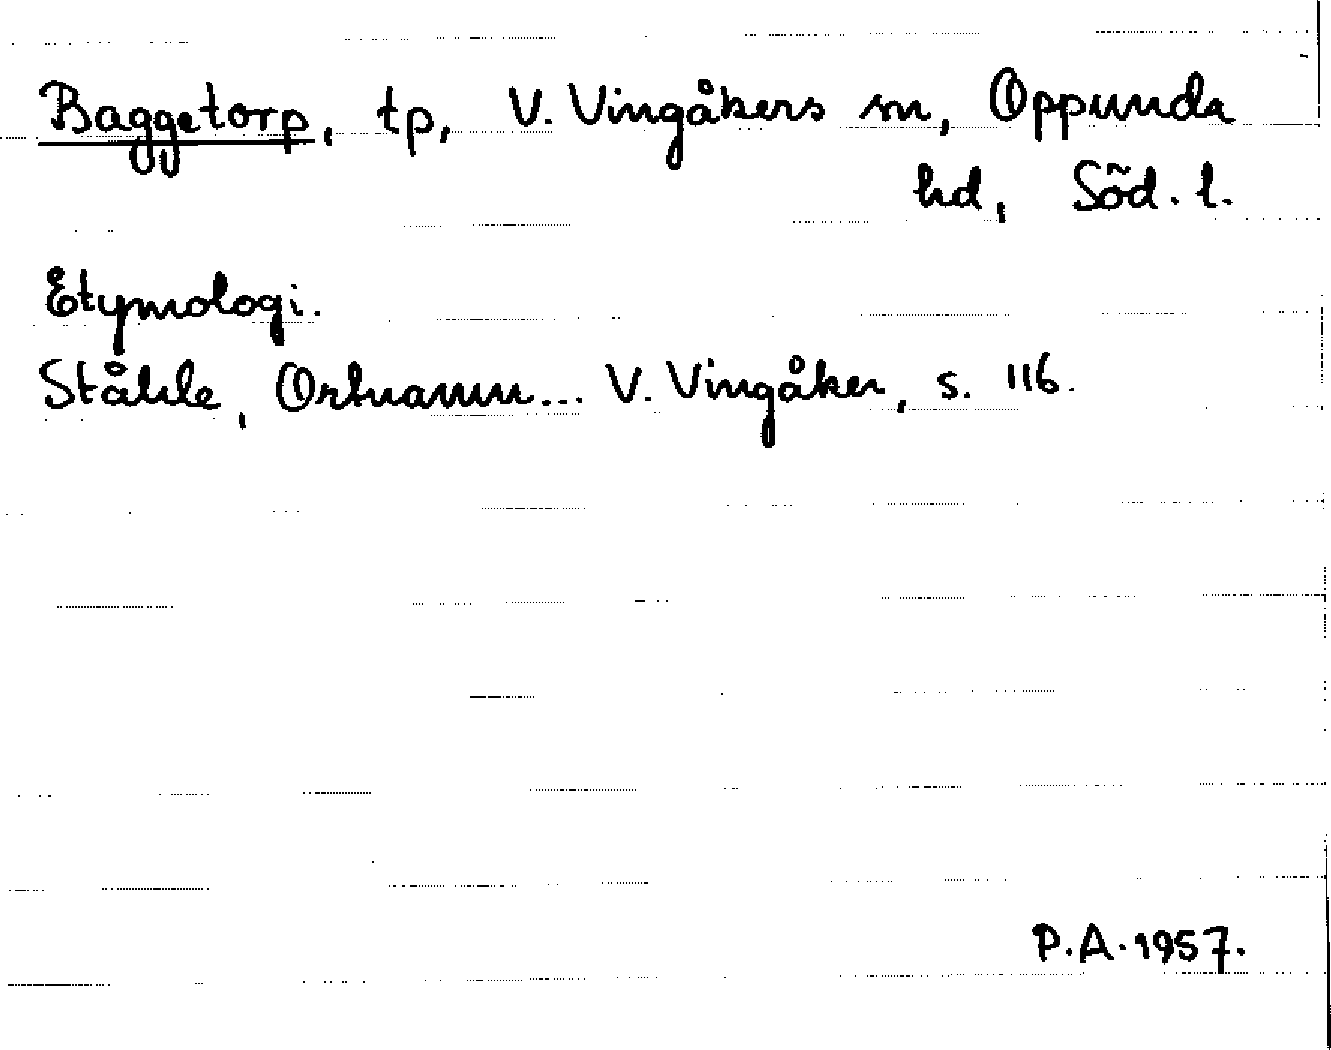 Baggetorp, tp, V. Vingåkers sn, Oppunda
hd, Söd. l.
Etymologi.
Ståhle, Ortnamn... V. Vingåker, s. 116.
P.A. 1957.